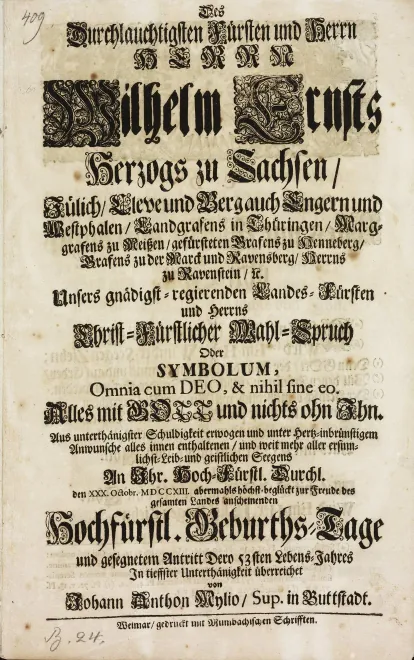 409
Des
Durchlauchtigsten Fürsten und Herrn
HERRN
Wilhelm Ernsts
Herzogs zu Sachsen/
Jülich/ Cleve und Berg auch Engern und
Westphalen/ Landgrafens in Thüringen/ Marg-
grafens zu Meißen/ gefürsteten Grafens zu Henneberg/
Grafens zu der Marck und Ravensberg/ Herrns
zu Ravenstein/ ꝛc.
Unsers gnädigst-regierenden Landes-Fürsten
und Herrns
Christ-Fürstlicher Wahl-Spruch
Oder
SYMBOLUM,
Omnia cum DEO, & nihil sine eo.
Alles mit GOTT und nichts ohn Ihn.
Aus unterthänigster Schuldigkeit erwogen und unter Hertz-inbrünstigem
Anwunsche alles innen enthaltenen/ und weit mehr aller ersinn-
lichst-Leib- und geistlichen Seegens
An Ihr. Hoch-Fürstl. Durchl.
den XXX. Octobr. MDCCXIII. abermahls höchst-beglückt zur Freude des
gesamten Landes anscheinenden
Hochfürstl. Geburths-Tage
und gesegnetem Antritt Dero 53sten Lebens-Jahres
In tieffster Unterthänigkeit überreichet
von
Johann Anthon Mylio/ Sup. in Buttstadt.
Weimar/ gedruckt mit Mumbachischen Schrifften.
B. 24.